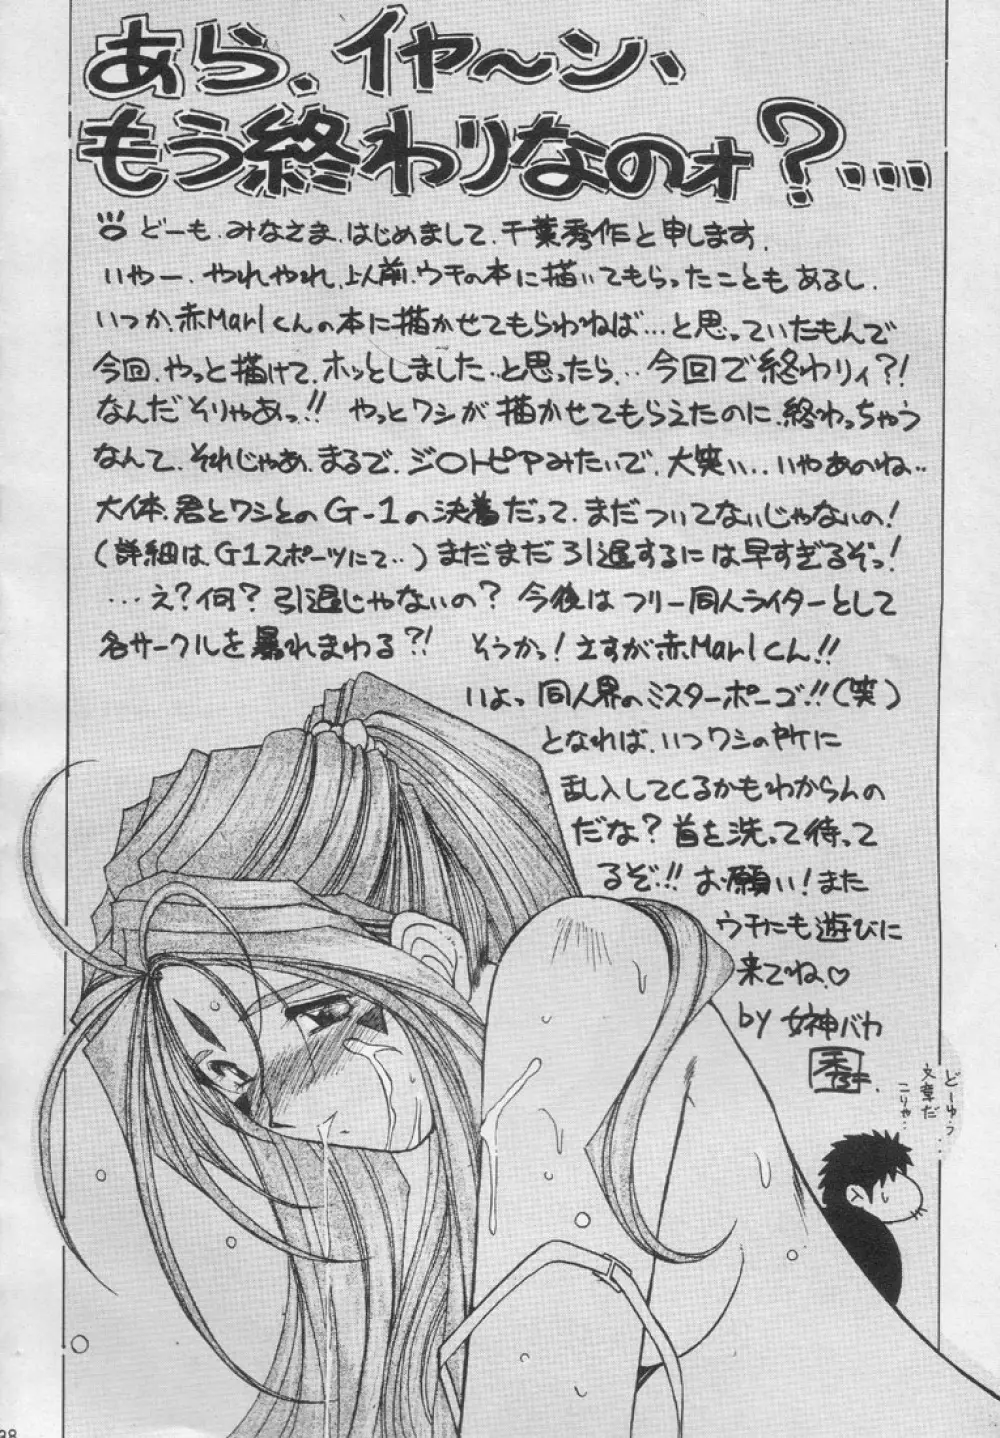 あら、イヤ〜ン、
もう終わりなのォ?…
どーも、みなさま、はじめまして、千葉秀作と申します。
いやー、やれやれ、以前、ウチの本に描いてもらったこともあるし、
いつか、赤Marlくんの本に描かせてもらわねば…と思っていたもんで
今回、やっと描けて、ホッとしました…と思ったら…今回で終わりィ?!
なんだそりゃあっ!! やっとワシが描かせてもらえたのに、終わっちゃう
なんて、それじゃあ、まるで、ジ〇トピアみたいで、大笑い…いやあのね…
大体、君とワシとのG-1の決着だって、まだついてないじゃないの!
(詳細は、G1スポーツにて…)まだまだ引退するには早すぎるぞっ!
…え?何? 引退じゃないの? 今後はフリー同人ライターとして
各サークルを暴れまわる?! そうかっ! さすが赤Marlくん!!
いよっ 同人界のミスターポーゴ!!(笑)
となれば、いつワシの所に
乱入してくるかもわからんの
だな? 首を洗って待って
るぞ!! お願い! また
ウチにも遊びに
来てね♡
by 女神バカ
秀作
どーゆう
文章だ
こりゃ…
38